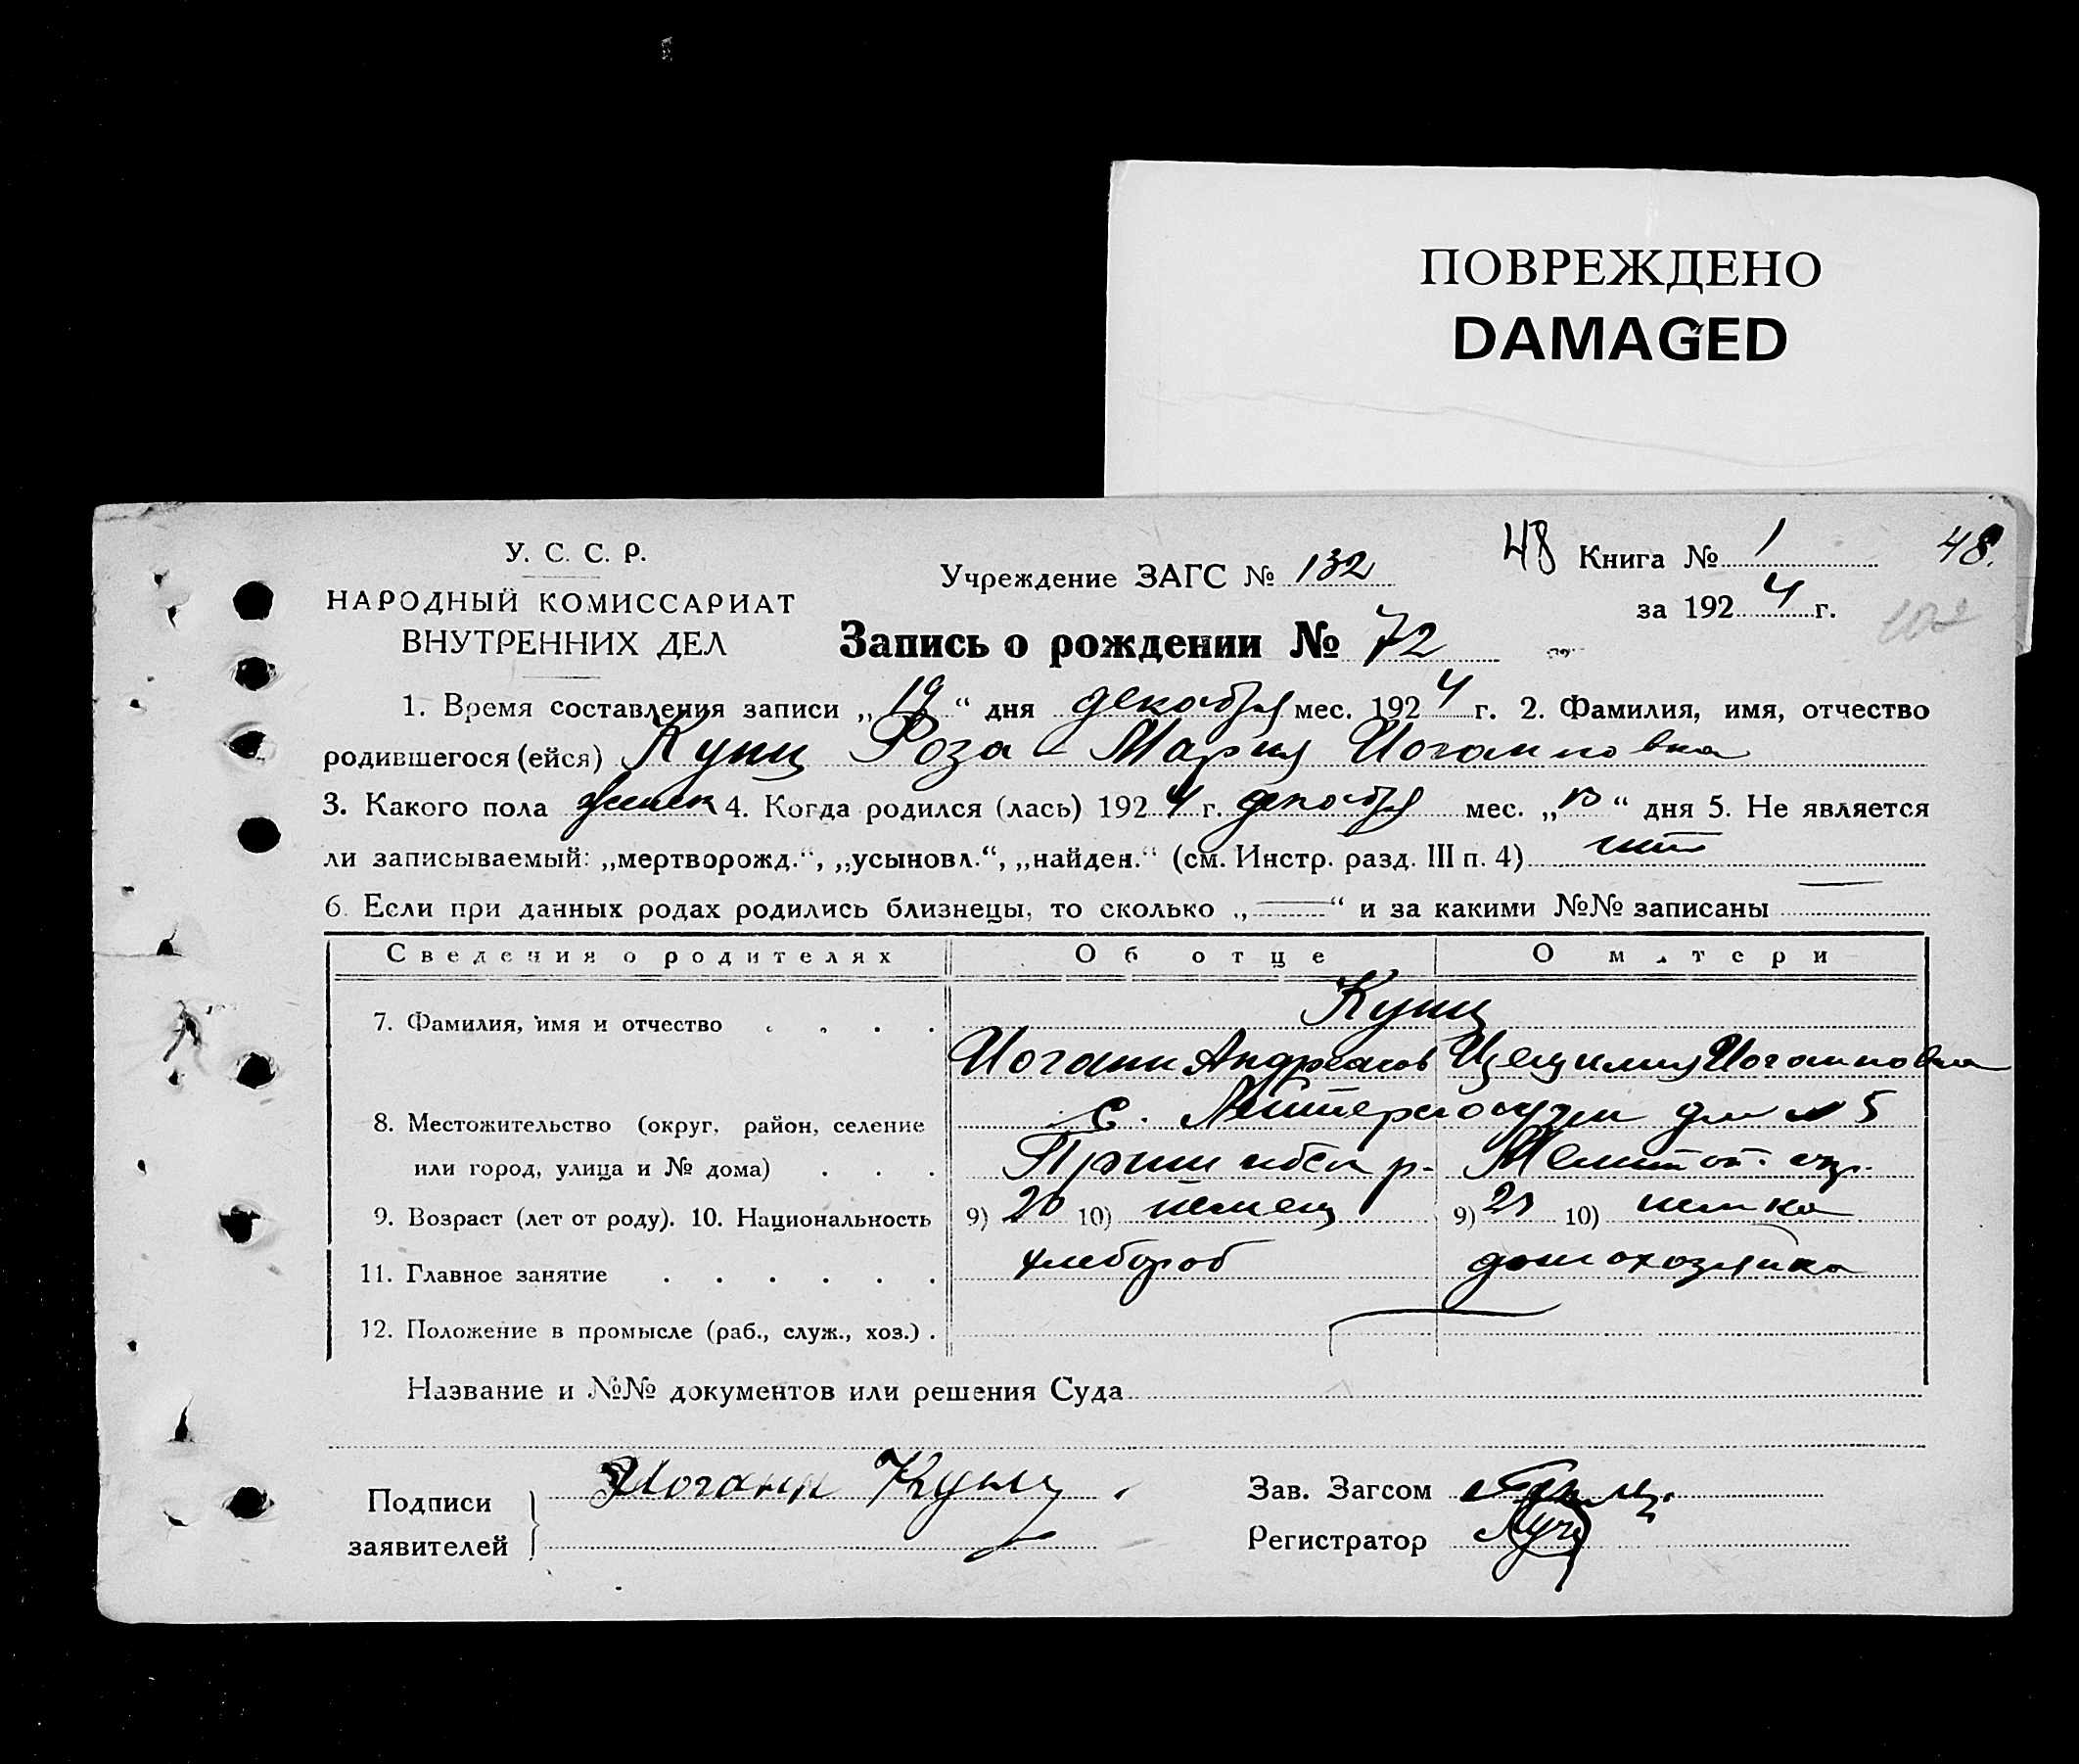 ПОВРЕЖДЕНО
DAMAGED
У. С. С. Р.
НАРОДНЫЙ КОМИССАРИАТ
ВНУТРЕННИХ ДЕЛ
Учреждение ЗАГС № 132
48 Книга № 1 48.
за 1924 г.
102
Запись о рождении № 72
1. Время составления записи „19“ дня декабря мес. 1924 г. 2. Фамилия, имя, отчество
родившегося (ейся) Кунц Роза - Мария Иоганновна
3. Какого пола женск 4. Когда родился (лась) 1924 г. декабря мес. „13“ дня 5. Не является
ли записываемый: „мертворожд.“, „усыновл.“, „найден.“ (см. Инстр. разд. III п. 4) нет
6. Если при данных родах родились близнецы, то сколько „—“ и за какими №№ записаны —
Сведения о родителях Об отце О матери
7. Фамилия, имя и отчество . . . . Кунц
Иоганн Андреасов Цецилия Иоганновна
8. Местожительство (округ, район, селение с. Лейтерсгаузен дм № 5
или город, улица и № дома) . . . Пришибск р. Мелит. ок.
9. Возраст (лет от роду). 10. Национальность 9) 20 10) немец 9) 21 10) немка
11. Главное занятие . . . . . . хлебороб домохозяйка
12. Положение в промысле (раб., служ., хоз.) . —
Название и №№ документов или решения Суда
Подписи заявителей Иоганн Кунц
Зав. Загсом
Регистратор